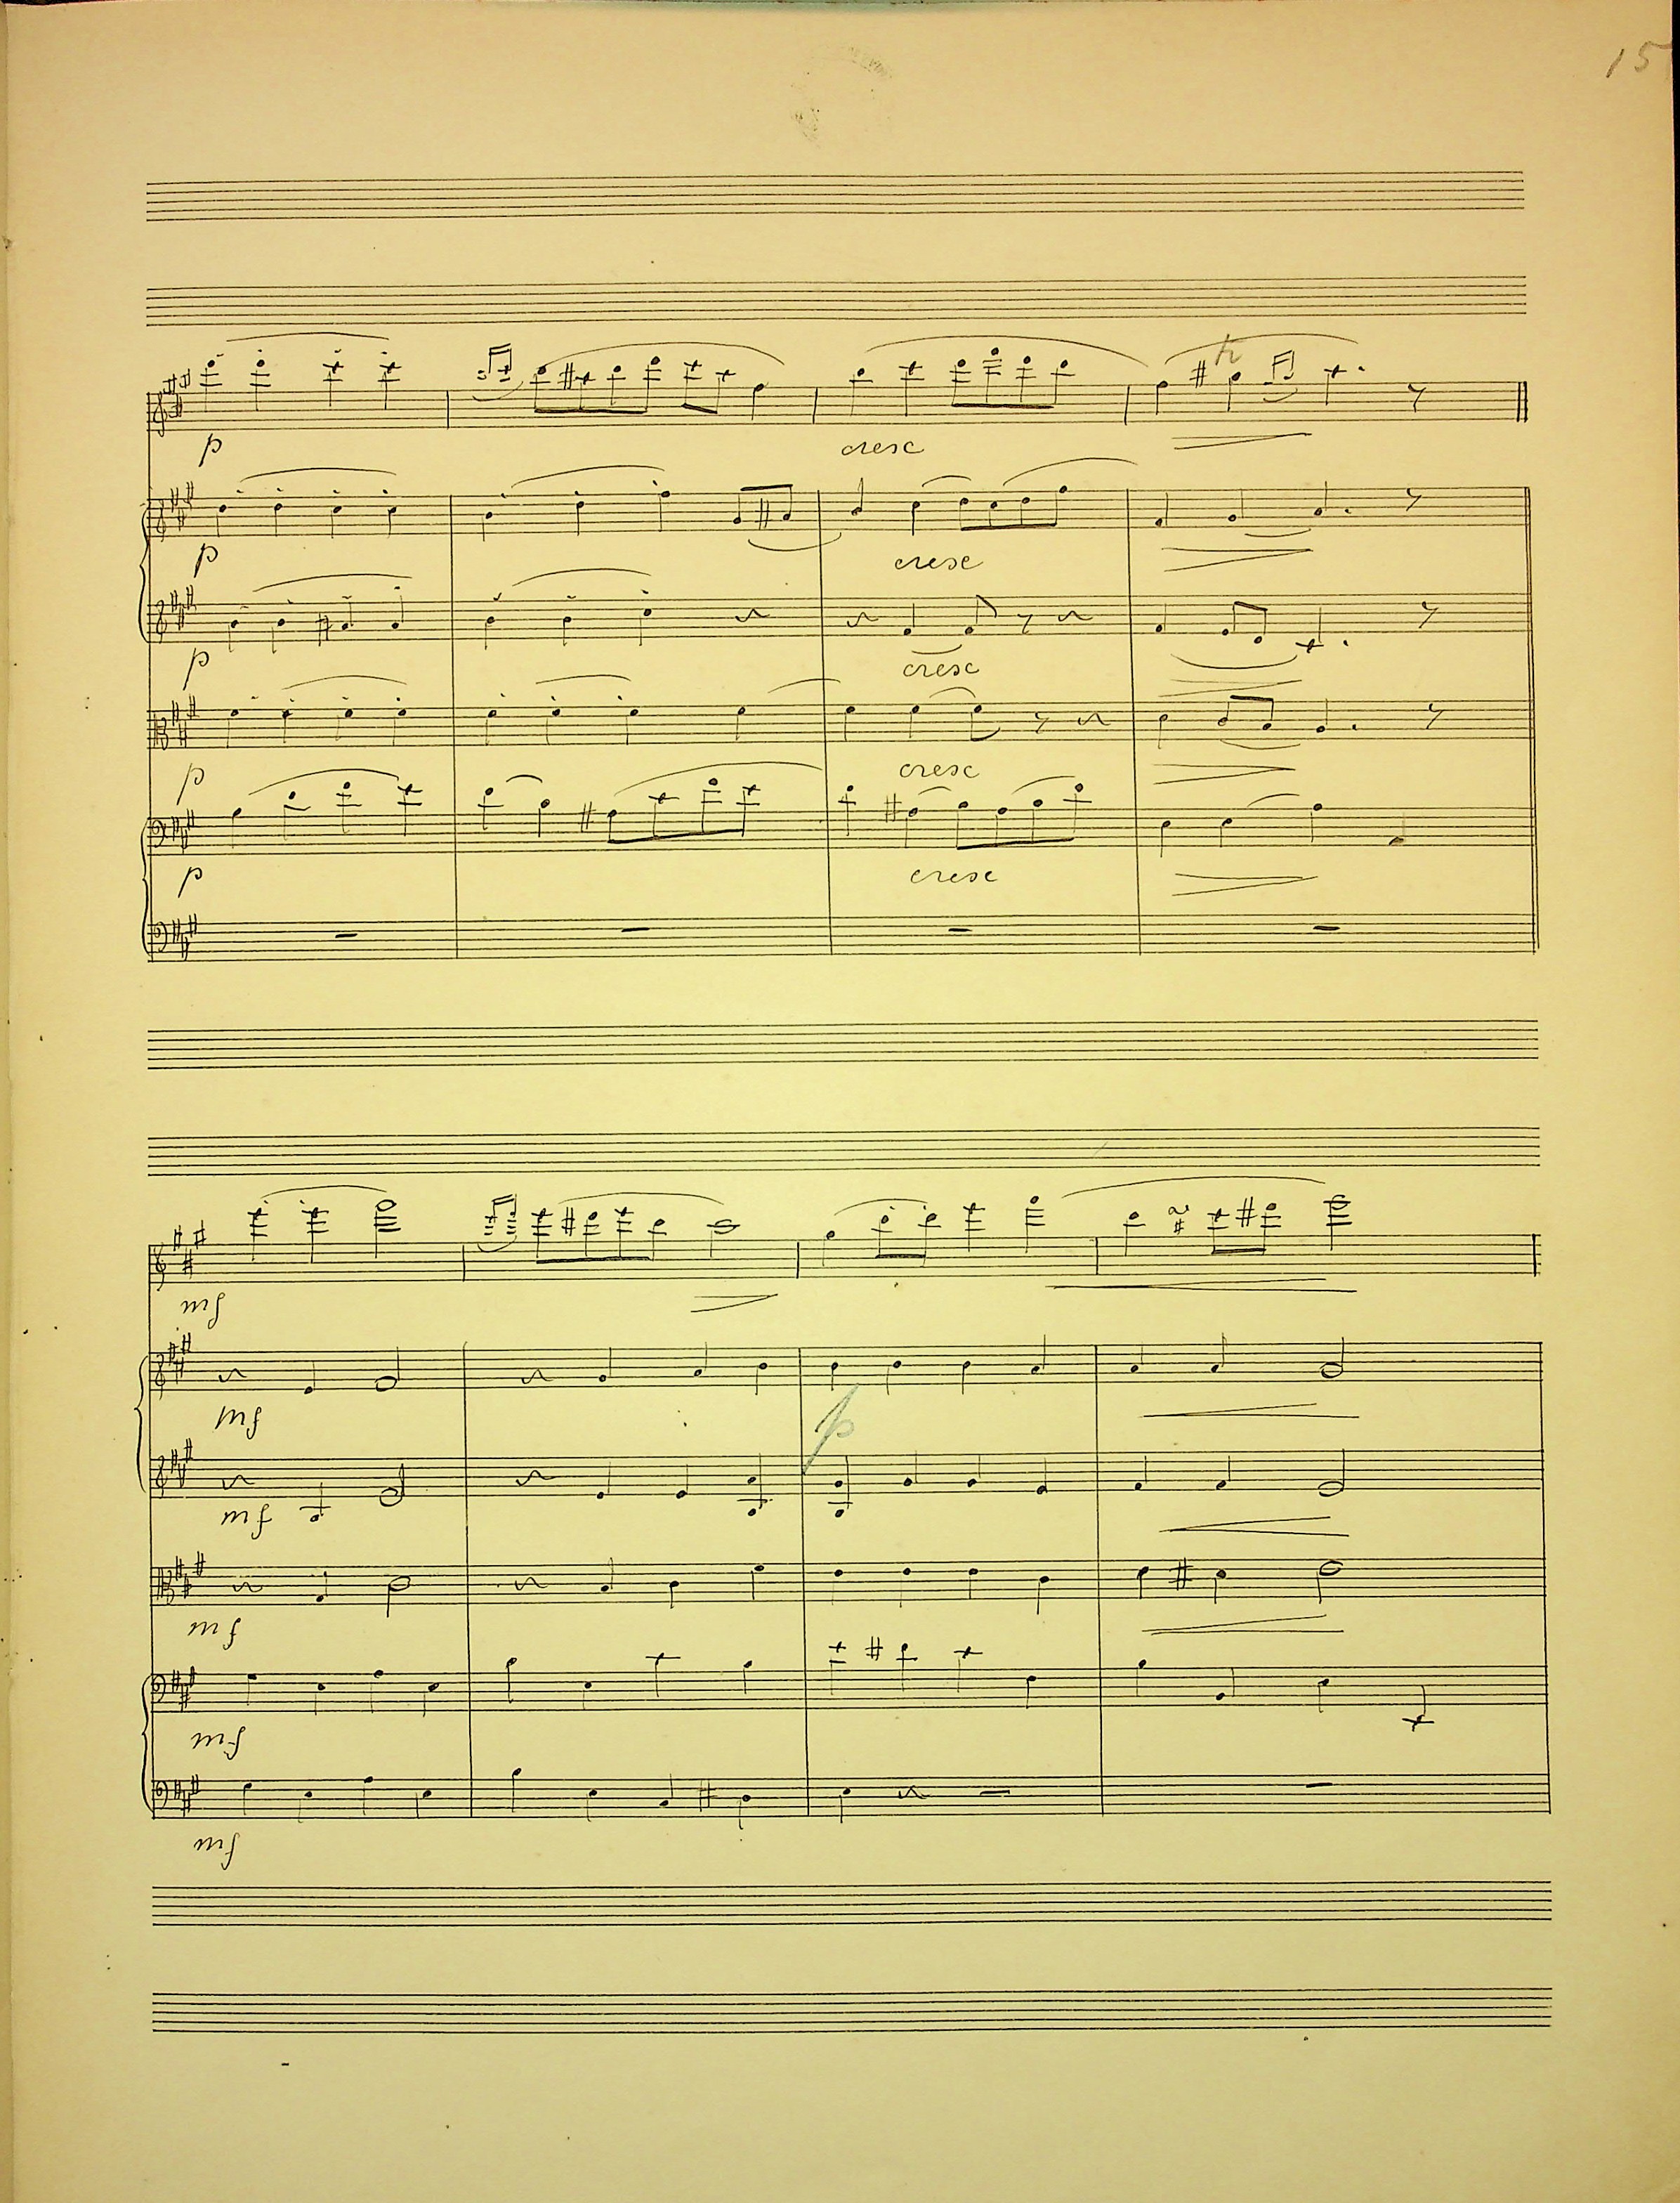 15
tr
p
cresc
p
cresc
p
cresc
p
cresc
p
cresc
mf
mf
p
mf
mf
mf
mf